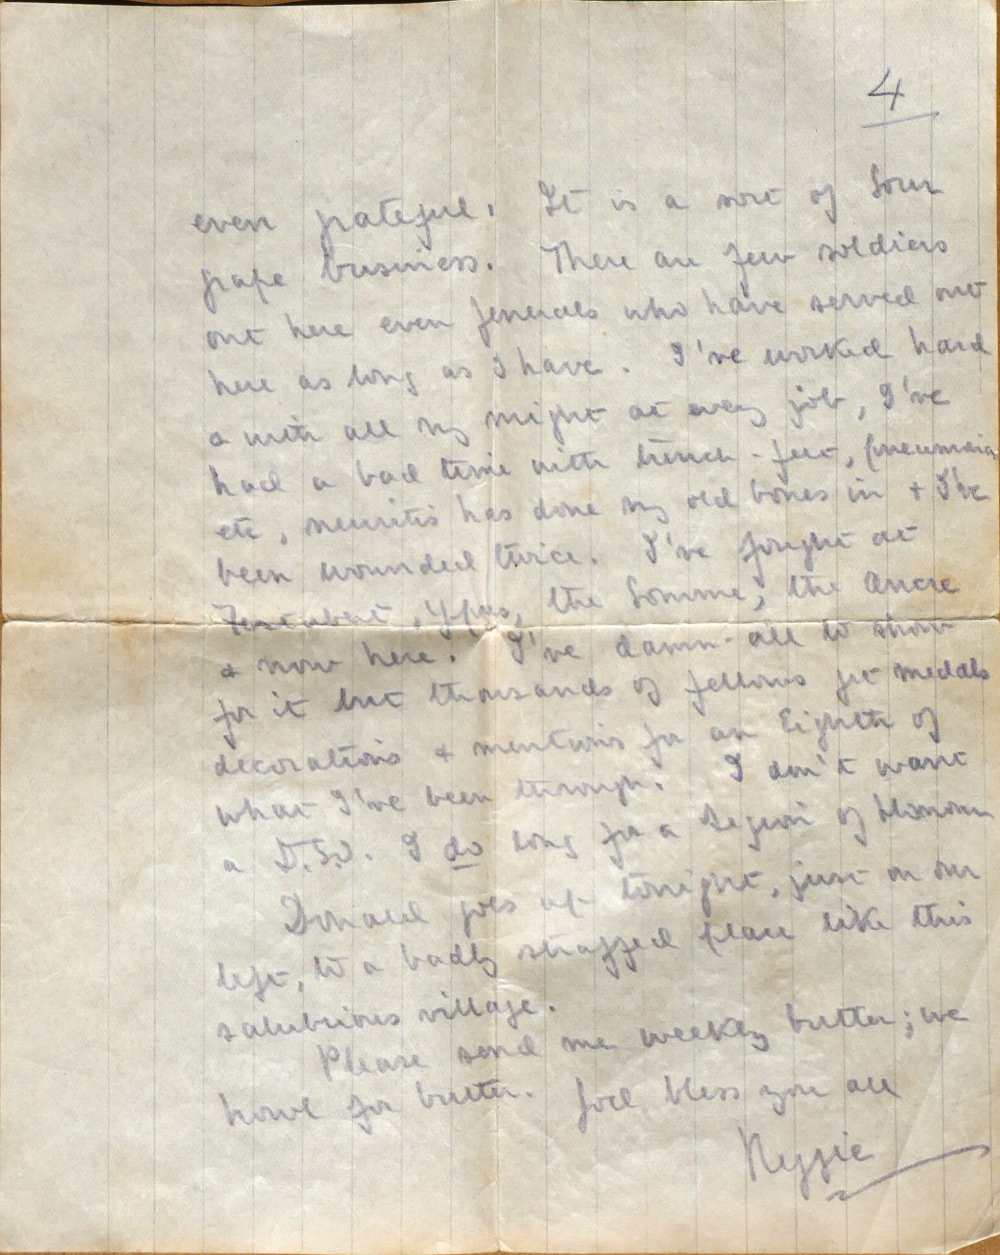 4
even grateful. It is a sort of sour
grape business. There are few soldiers
out here even generals who have served out
here as long as I have. I've worked hard
& with all my might at every job, I've
had a bad time with trench-feet, pneumonia
etc, neuritis has done my old bones in + I've
been wounded twice. I've fought at
Festubert, Ypres, the Somme, the Ancre
& now here. I've damn-all to show
for it but thousands of fellows get medals
decorations & mentions for an Eighth of
what I've been through. I don't want
a D.S.O. I do long for a Legion of Honour
Donald goes up tonight, just on our
left, to a badly straffed place like this
salubrious village.
Please send me weekly butter; we
howl for butter. God bless you all
Reggie